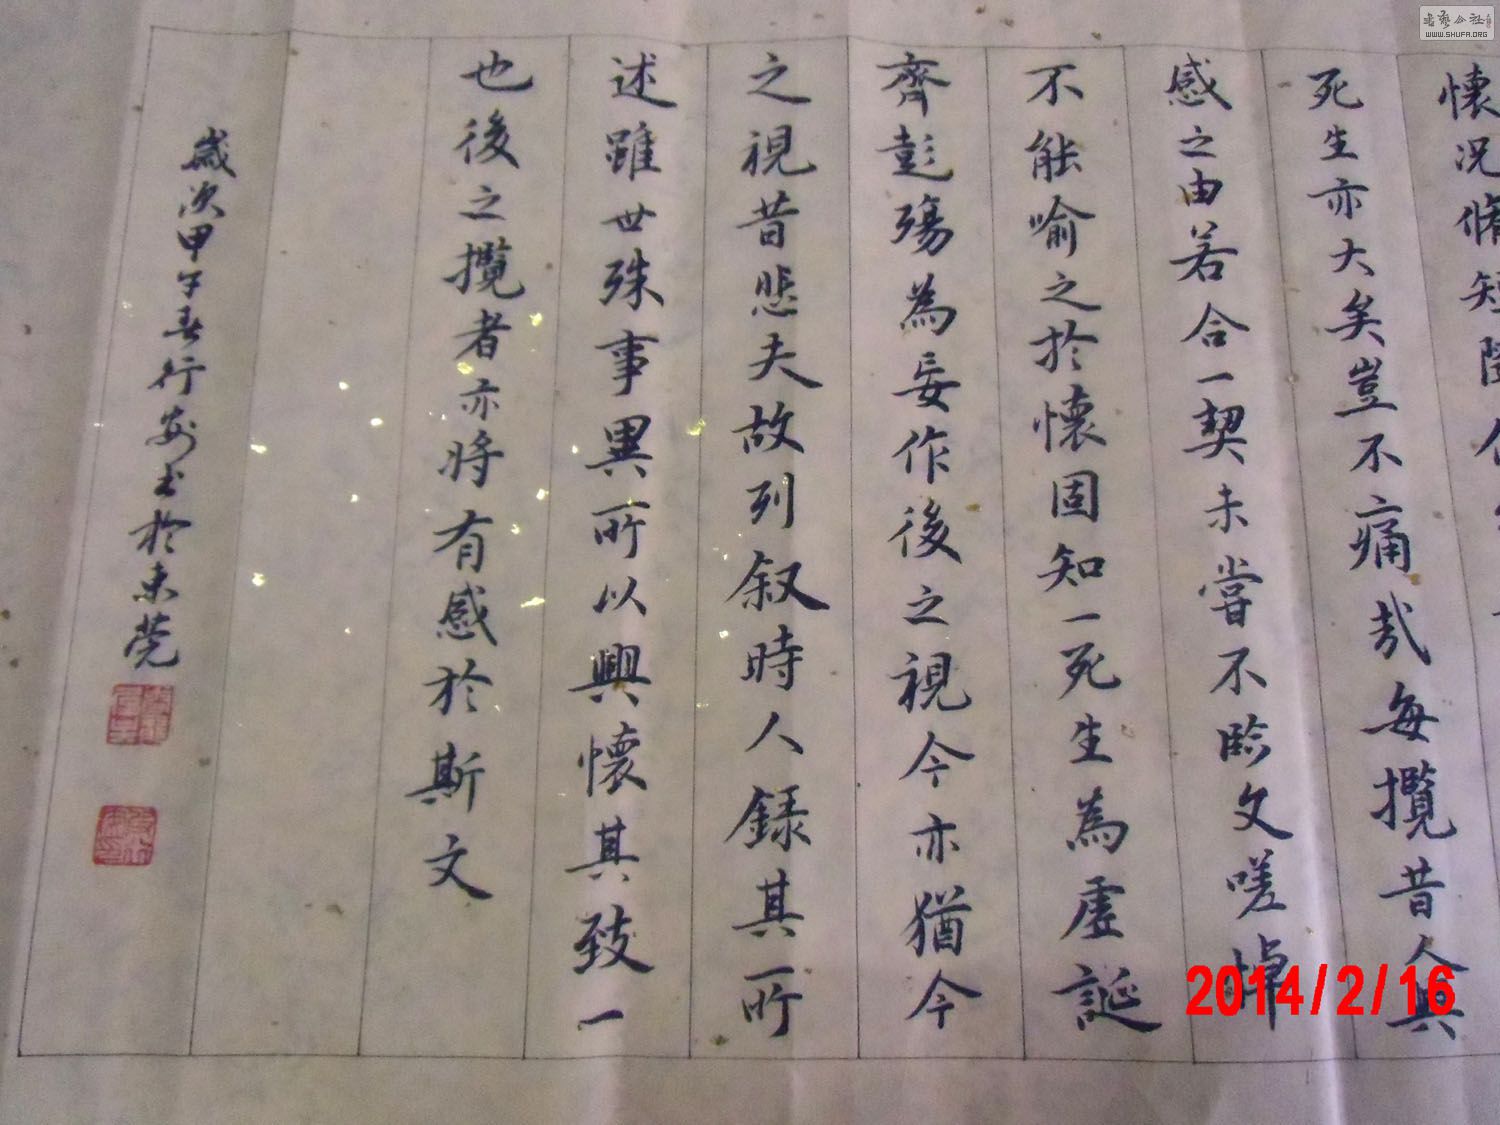 懷況脩短隨化
死生亦大矣豈不痛哉每攬昔人興
感之由若合一契未嘗不臨文嗟悼
不能喻之於懷固知一死生為虛誕
齊彭殤為妄作後之視今亦猶今
之視昔悲夫故列叙時人錄其所
述雖世殊事異所以興懷其致一
也後之攬者亦將有感於斯文
歲次甲午春行安書於東莞
書藝公社
WWW.SHUFA.ORG
2014/2/16